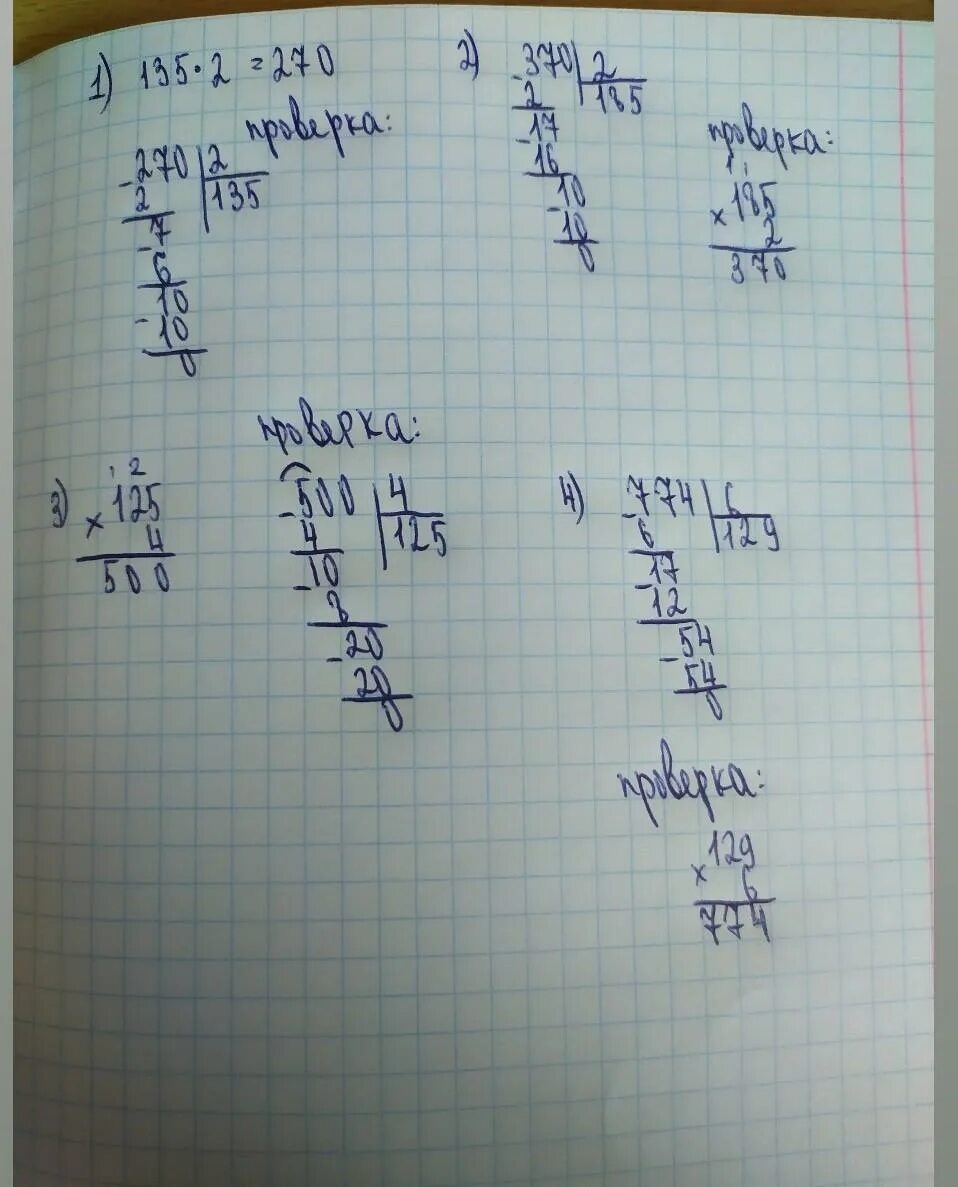 1) 135·2 = 270
проверка:
-270 | 2
2 | 135
-7
6
-10
10
0
2) -370 | 2
2 | 185
-17
16
-10
10
0
проверка:
1 1
× 185
2
370
3) 1 2
× 125
4
500
проверка:
-500 | 4
4 | 125
-10
8
-20
20
0
4) -774 | 6
6 | 129
-17
12
-54
54
0
проверка:
× 129
6
774